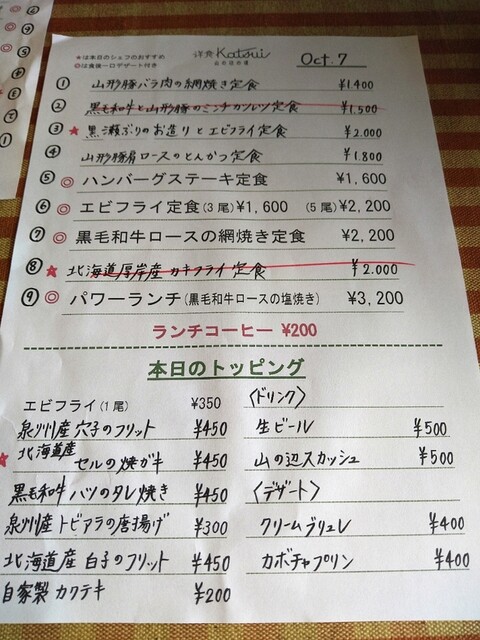 ★は本日のシェフのおすすめ
◎は食後一口デザート付き
洋食 Katsui
山の辺の道
Oct. 7
① 山形豚バラ肉の網焼き定食 ¥1.400
② 黒毛和牛と山形豚のミンチカツレツ定食 ¥1.500
③ ★ 黒瀬ぶりのお造りとエビフライ定食 ¥2.000
④ 山形豚肩ロースのとんかつ定食 ¥1.800
⑤ ◎ ハンバーグステーキ定食 ¥1,600
⑥ ◎ エビフライ定食(3尾)¥1,600 (5尾)¥2,200
⑦ ◎ 黒毛和牛ロースの網焼き定食 ¥2,200
⑧ ★ 北海道厚岸産カキフライ定食 ¥2.000
⑨ ◎ パワーランチ(黒毛和牛ロースの塩焼き) ¥3,200
ランチコーヒー ¥200
本日のトッピング
エビフライ(1尾) ¥350
泉州産 穴子のフリット ¥450
★ 北海道産 セルの焼ガキ ¥450
黒毛和牛 ハツのタレ焼き ¥450
泉州産 トビアラの唐揚げ ¥300
北海道産 白子のフリット ¥450
自家製 カクテキ ¥200
〈ドリンク〉
生ビール ¥500
山の辺スカッシュ ¥500
〈デザート〉
クリームブリュレ ¥400
カボチャプリン ¥400